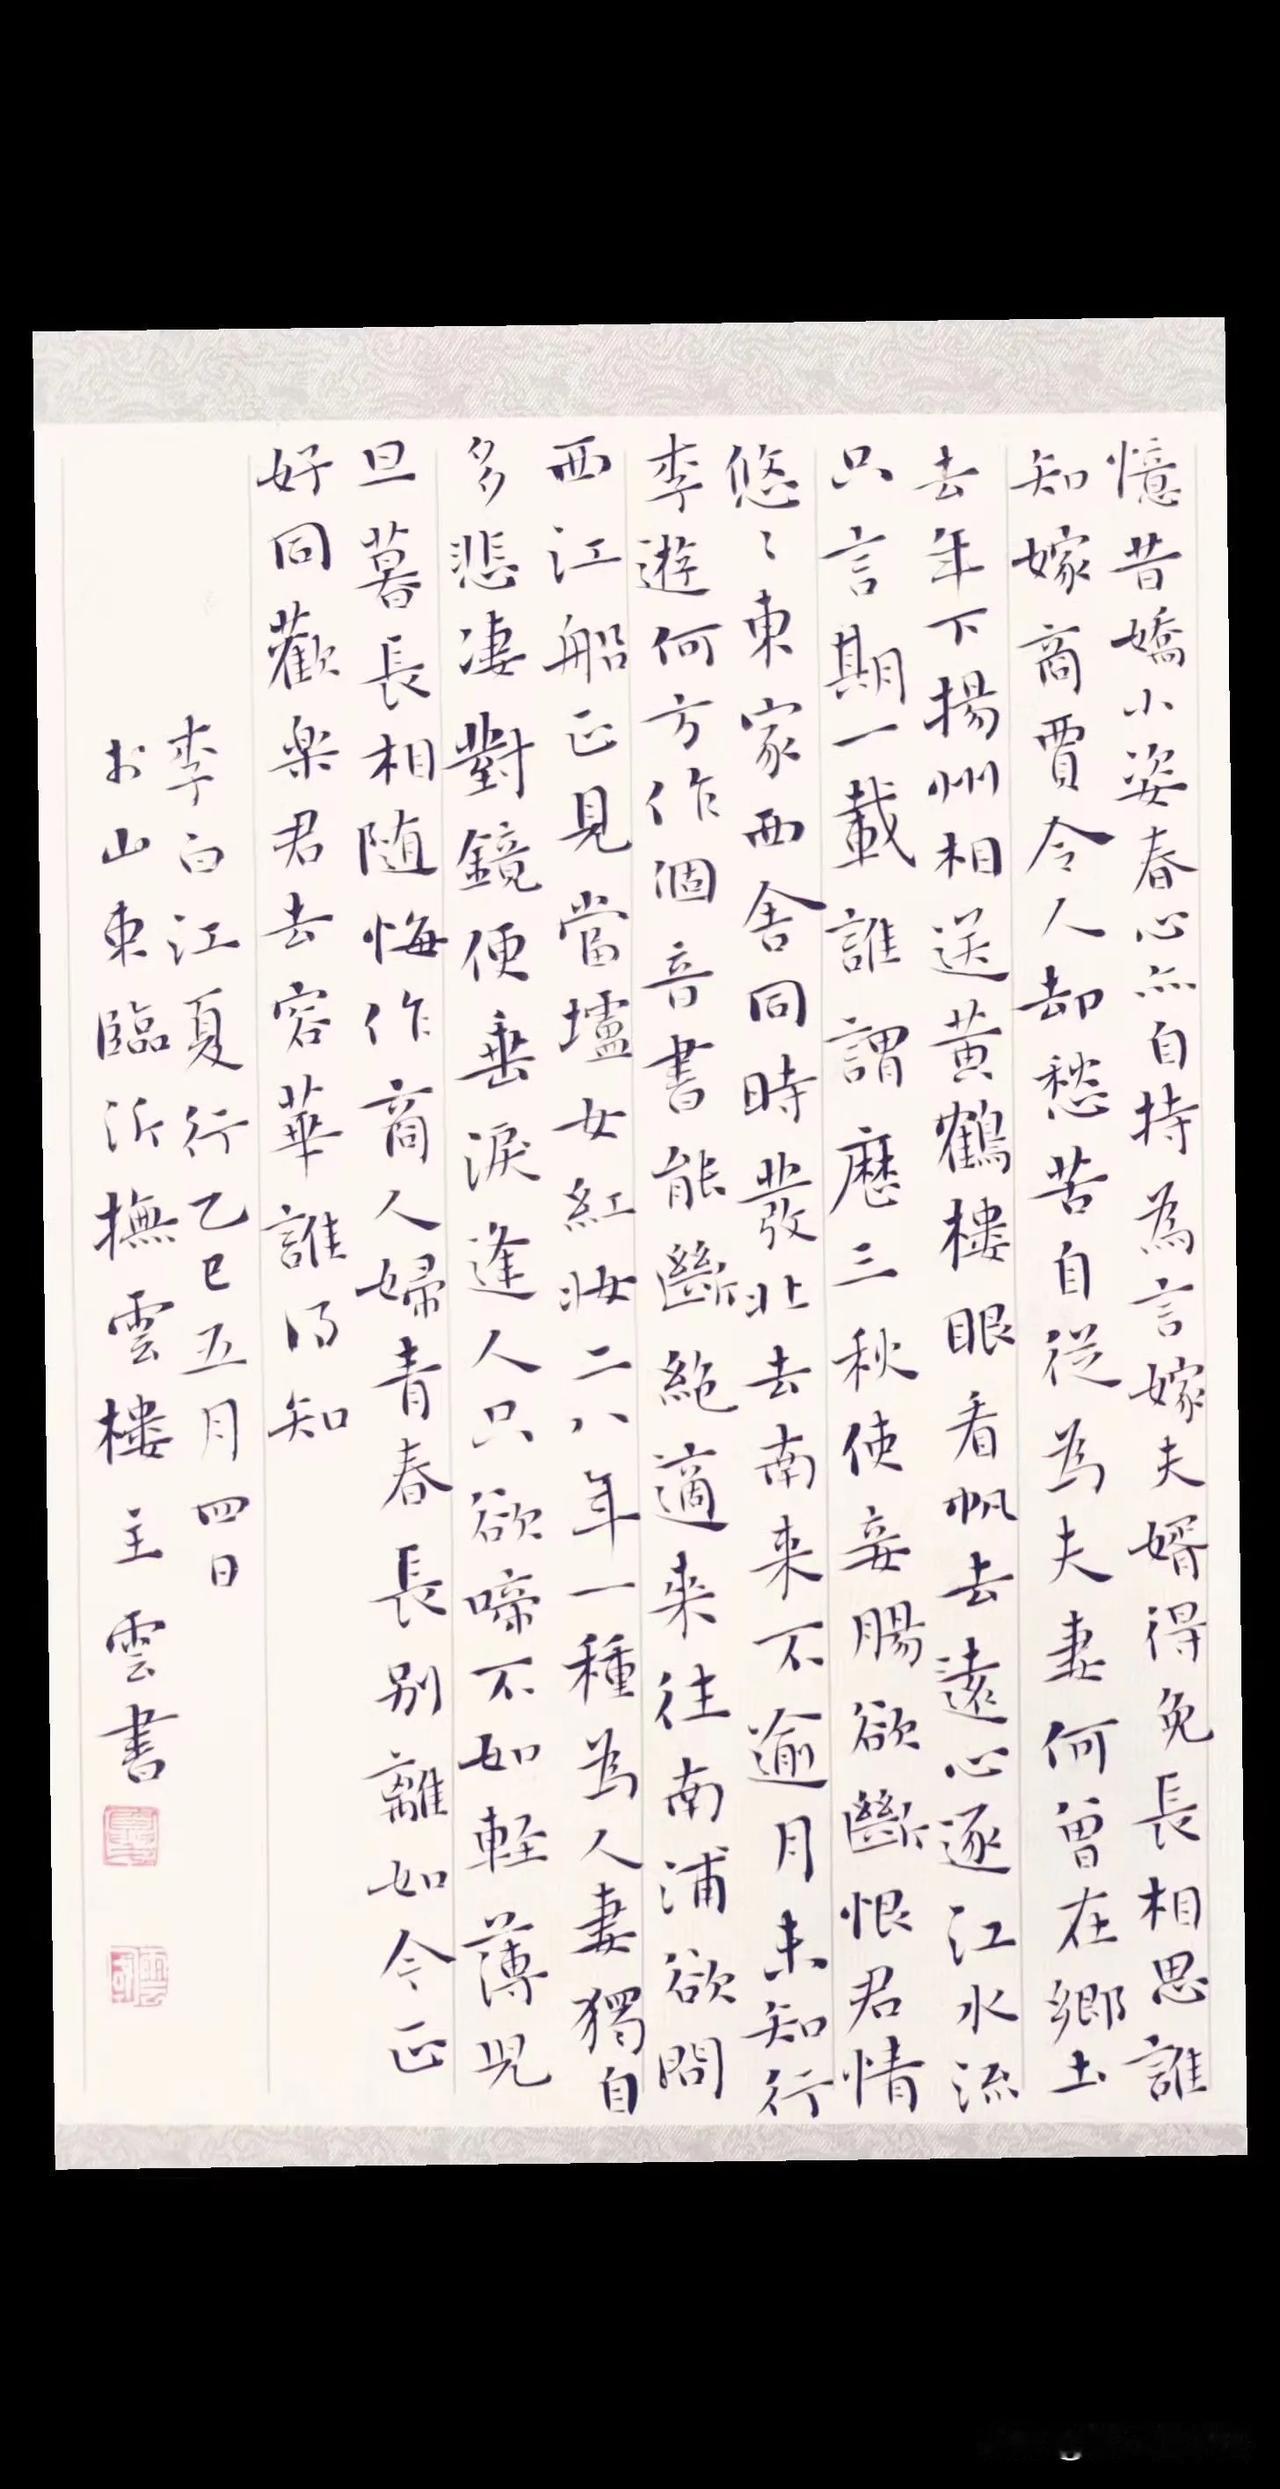 憶昔嬌小姿春心亦自持為言嫁夫婿得免長相思誰
知嫁商賈令人却愁苦自從為夫妻何曾在鄉土
去年下揚州相送黃鶴樓眼看帆去遠心逐江水流
只言期一載誰謂歷三秋使妾腸欲斷恨君情
悠〻東家西舍同時發北去南来不逾月未知行
李遊何方作個音書能斷絕適来往南浦欲問
西江船正見當壚女紅妝二八年一種為人妻獨自
多悲淒對鏡便垂淚逢人只欲啼不如輕薄兒
旦暮長相隨悔作商人婦青春長別離如今正
好同歡楽君去容華誰得知
李白江夏行乙巳五月四日
於山東臨沂撫雲樓主雲書